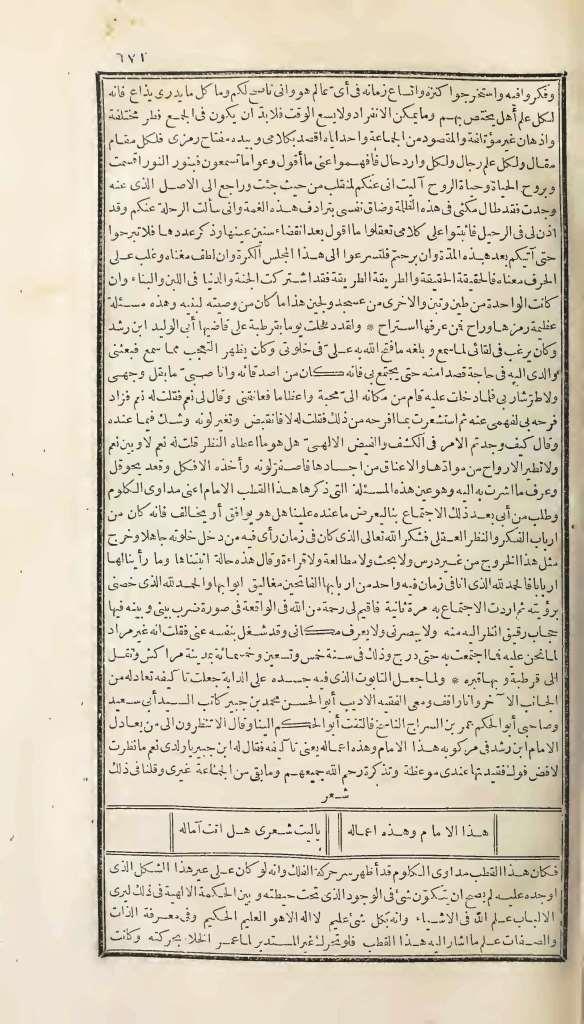 ٦٧٢
وفكروا فيه واستخرجوا كنزه واتساع زمانه في أي عالم هو واني ناصح لكم وما كل ما يدرى يذاع فانه
لكل علم أهل يختص بهم وما يمكن الانفراد ولا يسع الوقت فلا بد أن يكون في الجمع فطر مختلفة
واذهان غير مؤتلفة والمقصود من الجماعة واحد اياه اقصد بكلامي وبيده مفتاح رمزي فلكل مقام
مقال ولكل علم رجال ولكل وارد حال فافهموا عني ما أقول وعوا ما تسمعون فبنور النور اقسمت
وبروح الحياة وحياة الروح آليت اني عنكم لمنقلب من حيث جئت وراجع الى الاصل الذي عنه
وجدت فقد طال مكثي في هذه الظلمة وضاق نفسي بترادف هذه الغمة واني سألت الرحلة عنكم وقد
اذن لي في الرحيل فاثبتوا على كلامي تعقلوا ما اقول بعد انقضاء سنين عينها وذكر عددها فلا تبرحوا
حتى آتيكم بعد هذه المدة وان برحتم فلتسرعوا الى هذا المجلس الكرة وان لطف مغناه وغلب على
الحرف معناه فالحقيقة الحقيقة والطريقة الطريقة فقد اشتركت الجنة والدنيا في اللبن والبناء وان
كانت الواحدة من طين وتبن والاخرى من عسجد ولجين هذا ما كان من وصيته لبنيه وهذه مسئلة
عظيمة رمزها وراح فمن عرفها استراح * ولقد دخلت يوما بقرطبة على قاضيها أبي الوليد ابن رشد
وكان يرغب في لقائي لما سمع وبلغه ما فتح الله به علي في خلوتي وكان يظهر التعجب مما سمع فبعثني
والدي اليه في حاجة قصدا منه حتى يجتمع بي فانه كان من اصدقائه وانا صبي ما بقل وجهي
ولا طر شاربي فلما دخلت عليه قام من مكانه الي محبة واعظاما فعانقني وقال لي نعم فقلت له نعم فزاد
فرحه بي لفهمي عنه ثم استشعرت بما افرحه من ذلك فقلت له لا فانقبض وتغير لونه وشك فيما عنده
وقال كيف وجدتم الامر في الكشف والفيض الالهي هل هو ما اعطاه النظر قلت له نعم لا وبين نعم
ولا تطير الارواح من موادها والاعناق من اجسادها فاصفر لونه وأخذه الافكل وقعد يحوقل
وعرف ما اشرت به اليه وهو عين هذه المسئلة التي ذكرها هذا القطب الامام أعني مداوي الكلوم
وطلب من أبي بعد ذلك الاجتماع بنا ليعرض ما عنده علينا هل هو يوافق أو يخالف فانه كان من
ارباب الفكر والنظر العقلي فشكر الله تعالى الذي كان في زمان رأى فيه من دخل خلوته جاهلا وخرج
مثل هذا الخروج من غير درس ولا بحث ولا مطالعة ولا قراءة وقال هذه حالة اثبتناها وما رأينا لها
اربابا فالحمد لله الذي انا في زمان فيه واحد من اربابها الفاتحين مغاليق ابوابها والحمد لله الذي خصني
برؤيته ثم اردت الاجتماع به مرة ثانية فاقيم لي رحمة من الله في الواقعة في صورة ضرب بيني وبينه فيها
حجاب رقيق انظر اليه منه ولا يبصرني ولا يعرف مكاني وقد شغل بنفسه عني فقلت انه غير مراد
لما نحن عليه فما اجتمعت به حتى درج وذلك في سنة خمس وتسعين وخمسمائة بمدينة مراكش ونقل
الى قرطبة وبها قبره * ولما جعل التابوت الذي فيه جسده على الدابة جعلت تآليفه تعادله من
الجانب الآخر وانا واقف ومعي الفقيه الاديب أبو الحسن محمد بن جبير كاتب السيد أبي سعيد
وصاحبي أبو الحكم عمر بن السراج الناسخ فالتفت أبو الحكم الينا وقال ألا تنظرون الى من يعادل
الامام ابن رشد في مركوبه هذا الامام وهذه اعماله يعني تآليفه فقال له ابن جبير يا ولدي نعم ما نظرت
لا فض فوك فقيدتها عندي موعظة وتذكرة رحم الله جميعهم وما بقي من الجماعة غيري وقلنا في ذلك
شعر
هذا الامام وهذه اعماله يا ليت شعري هل اتت آماله
فكان هذا القطب مداوي الكلوم قد أظهر سر حركة الفلك وانه لو كان على غير هذا الشكل الذي
اوجده عليه لم يصح ان يتكون شيء في الوجود الذي تحت حيطته وبين الحكمة الالهية في ذلك ليرى
الالباب علم الله في الاشياء وانه بكل شيء عليم لا اله الا هو العليم الحكيم وفي معرفة الذات
والصفات علم ما اشار اليه هذا القطب فلو تحرك غير المستدير لما عمر الخلا بحركته وكانت